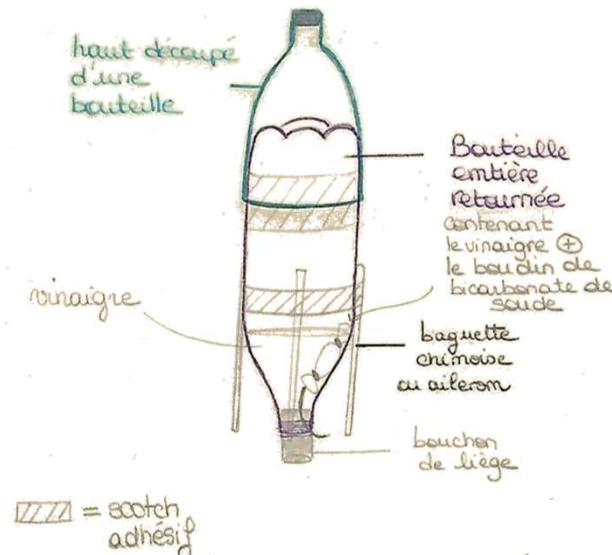 haut découpé
d'une
bouteille
Bouteille
entière
retournée
contenant
le vinaigre ⊕
le boudin de
bicarbonate de
soude
vinaigre
baguette
chinoise
ou aileron
bouchon
de liège
= scotch
adhésif